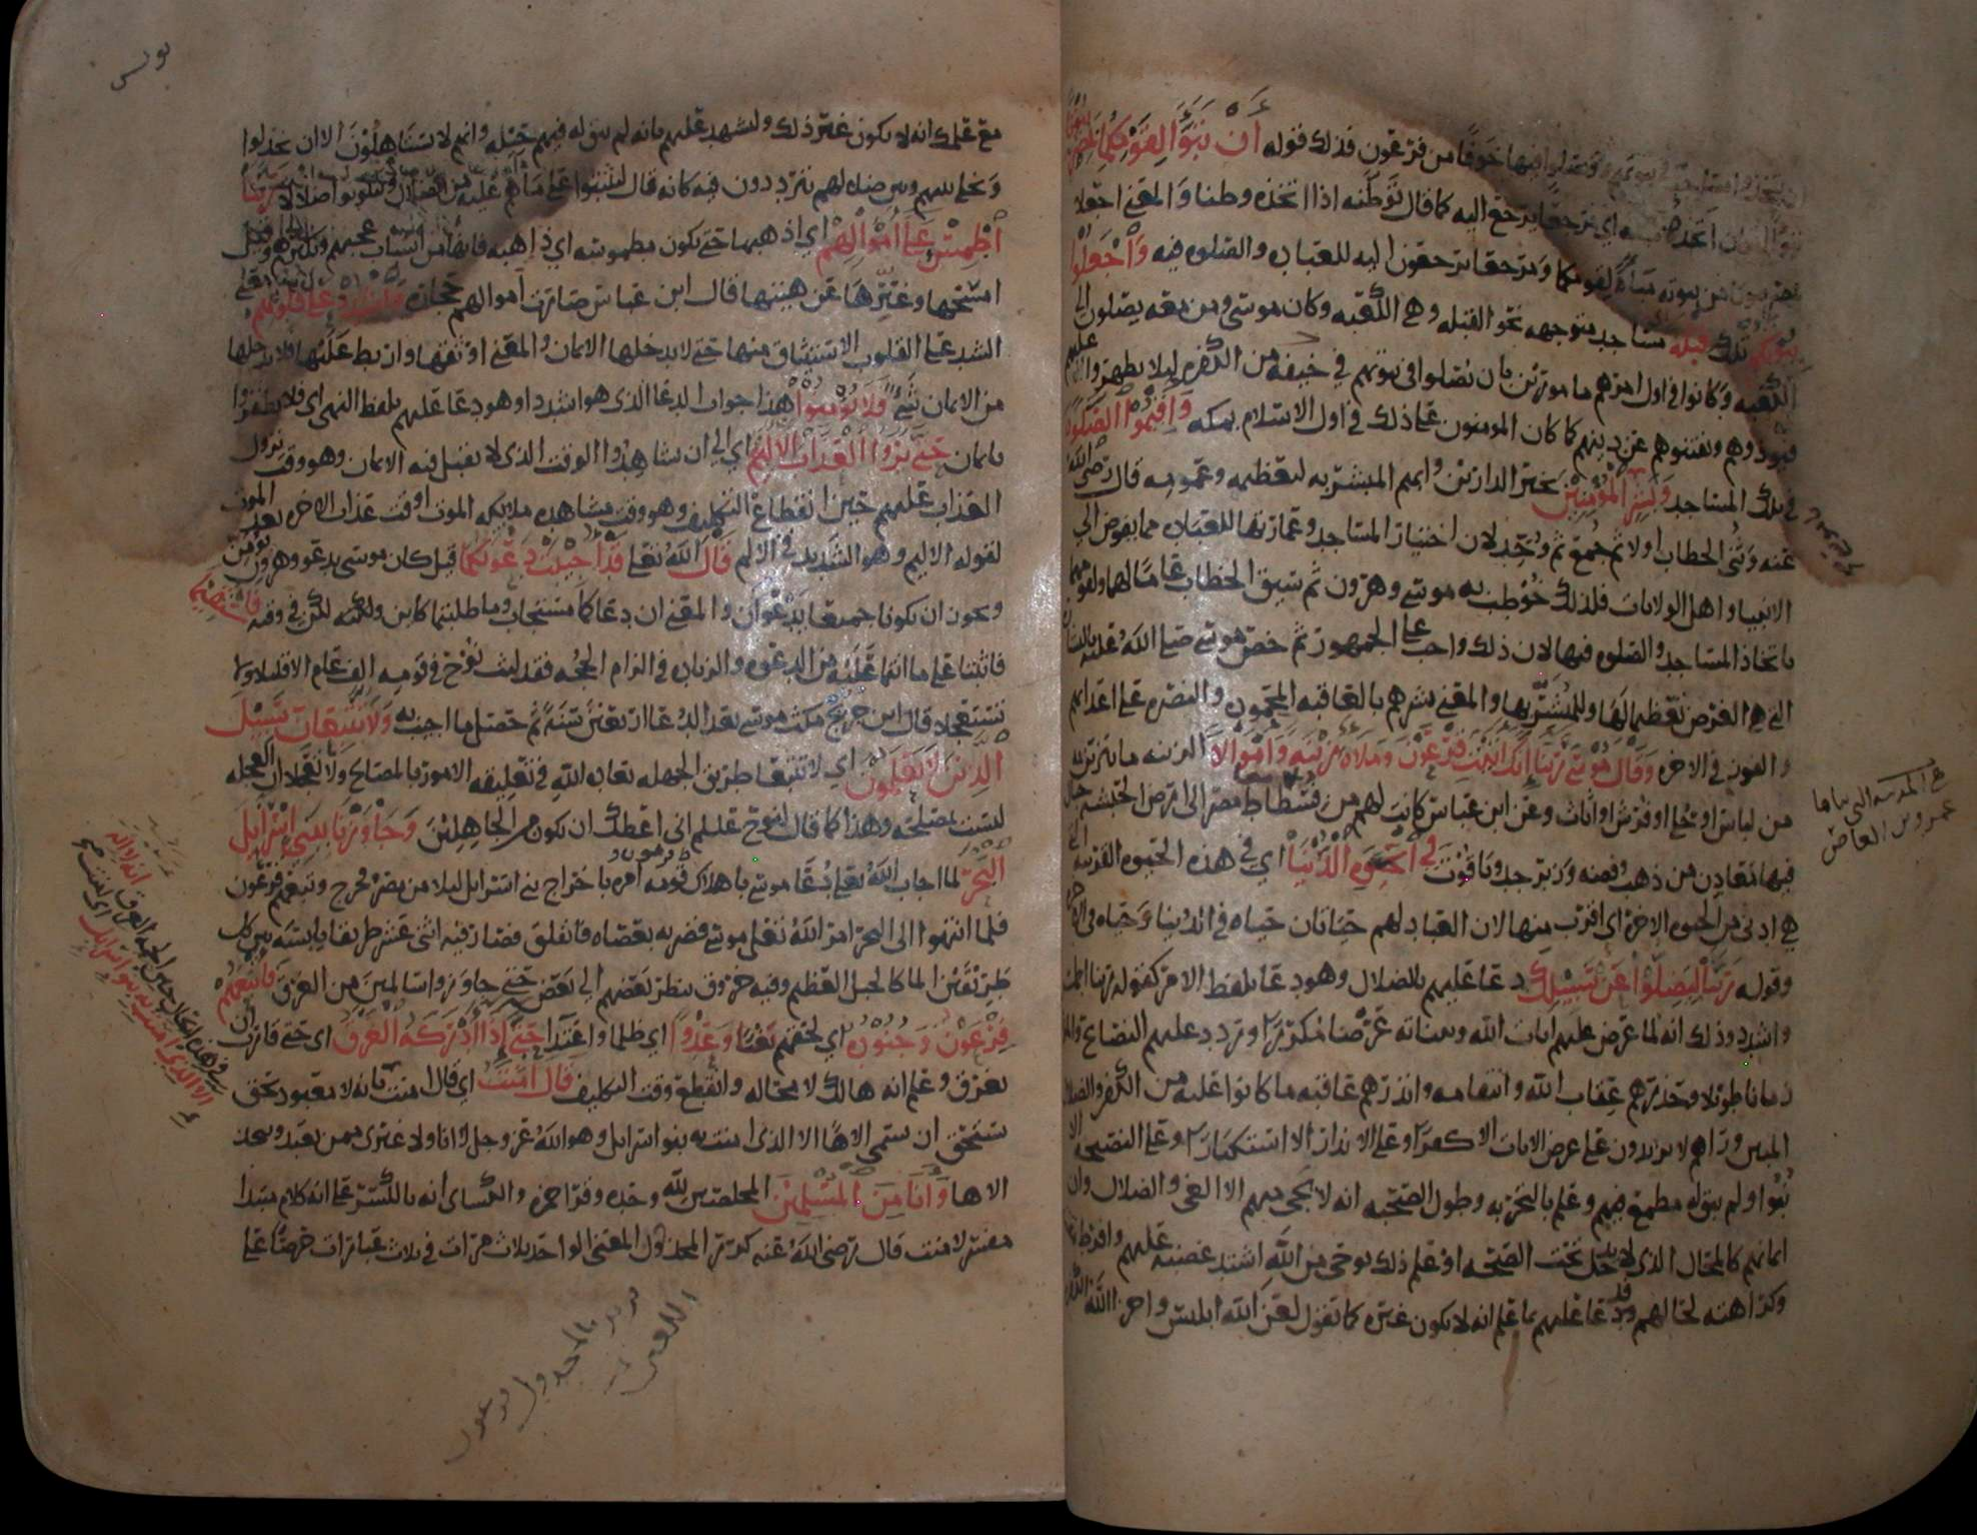 خوفا من فرعون فذلك قوله ان تبوا لقومكما
اي مرجعا يرجع اليه كما قال توطنه اذا اتخذه وطنا والمعنى اجعلا
من بيوته مباة لقومكما ومرجعا يرجعون اليه للعباده والصلوه فيه واجعلوا
بيوتكم تلك قبله مساجد متوجهه نحو القبله وهي الكعبه وكان موسى ومن معه يصلون الى
الكعبه وكانوا في اول امرهم مامورين بان يصلوا في بيوتهم في خيفه من الكفره ليلا يظهروا عليهم
فيوذوهم ويفتنوهم عن دينهم كما كان المومنون على ذلك في اول الاسلام بمكه واقيموا الصلوه
في تلك المساجد وبشر المؤمنين بخير الدارين وابهم المبشر به لتعظيمه وعمومه قال رضي الله
عنه وثنى الخطاب اولا ثم جمع ثم وحد لان اختيار المساجد وعمارتها للعباده مما يفوض الى
الانبيا واهل الولايات فلذلك خوطب به موسى وهرون ثم سيق الخطاب عاما لهما ولقومهما
باتخاذ المساجد والصلوه فيها لان ذلك واجب على الجمهور ثم خص موسى صلى الله عليه بالبشاره
التي هي الغرض تعظيما لها وللمبشر بها والمعنى بشرهم بالعاقبه المحموده والنصره على اعدايهم
والفوز في الاخره وقال موسى ربنا انك اتيت فرعون وملاه زينه واموالا الزينه ما يتزين به
من لباس او حلي او فرش او اثاث وعن ابن عباس كانت لهم من فسطاط مصر الى ارض الحبشه جبال
فيها معادن من ذهب وفضه وزبرجد وياقوت في الحيوه الدنيا اي في هذه الحيوه القريبه التي
هي ادنى من الحيوه الاخره اي اقرب منها لان العباد لهم حياتان حياه في الدنيا وحياه في الاخره
وقوله ربنا ليضلوا عن سبيلك دعا عليهم بالضلال وهو دعا بلفظ الامر كقوله ربنا اطمس
واشدد وذلك انه لما عرض عليهم ايات الله وبيناته عرضا مكررا وتردد عليهم النصايح والمواعظ
زمانا طويلا وحذرهم عقاب الله وانتقامه وانذرهم عاقبه ما كانوا عليه من الكفر والضلال
المبين وراهم لا يزيدون على عرض الايات الا كفرا وعلى الانذار الا استكبارا وعلى النصيحه الا
نبوا ولم يبق له مطمع فيهم وعلم بالتجربه وطول الصحبه انه لا يجي منهم الا الغي والضلال وان
ايمانهم كالمحال الذي لا يدخل تحت الصحه او علم ذلك بوحي من الله اشتد غضبه عليهم وافرط
وكراهته لحالهم ودعا عليهم بما علم انه لا يكون غيره كما تقول لعن الله ابليس واخزى الله
على المدرسه التي بناها
عمرو بن العاص
يونس
مع علمك انه لا يكون غير ذلك وليشهد عليهم بانه لم يبق له فيهم حيله وانهم لا يستاهلون الا ان يخذلوا
ويخلى بينهم وبين ضلالهم يترددون فيه كانه قال ليثبتوا على ما هم عليه من الضلال وليكونوا ضلالا ربنا
اطمس على اموالهم اي اذهبها حتى تكون مطموسه اي ذاهبه
امسخها وغيرها عن هيئتها قال ابن عباس صارت اموالهم حجاره واشدد على قلوبهم
الشد على القلوب الاستيثاق منها حتى لا يدخلها الايمان والمعنى اوثقها واربط عليها فلا يدخلها
من الايمان شي فلا يؤمنوا هذا جواب الدعا الذي هو اشدد او هو دعا عليهم بلفظ النهي اي فلا يظفروا
بايمان حتى يروا العذاب الاليم اي الى ان يشاهدوا الوقت الذي لا يقبل فيه الايمان وهو وقت نزول
العذاب عليهم حين انقطاع التكليف وهو وقت مشاهده ملايكه الموت او وقت عذاب الاخره بعد الموت
لقوله الاليم وهو الشديد في الالم قال الله تعلى قد اجيبت دعوتكما قيل كان موسى يدعو وهرون يومن
ويجوز ان يكونا جميعا يدعوان والمعنى ان دعاكما مستجاب وما طلبتما كاين ولكنه لكن في وقته فاستقيما
فاثبتا على ما انتما عليه من الدعوه والزياده في الزام الحجه فقد لبث نوح في قومه الف عام الا قليلا ولا
تستعجلا قال ابن جريج مكث موسى بعد الدعا اربعين سنه ثم حصل ما اجيب به ولا تتبعان سبيل
الذين لا يعلمون اي لا تتبعا طريق الجهله بعاده الله في تعليقه الامور بالمصالح ولا تعجلا ان العجله
ليست بمصلحه وهذا كما قال لنوح عليلم اني اعظك ان تكون من الجاهلين وجاوزنا ببني اسرايل
البحر لما اجاب الله تعلى دعا موسى باهلاك فرعون وقومه امره باخراج بني اسرايل ليلا من مصر فخرج وتبعهم فرعون
فلما انتهوا الى البحر امر الله تعلى موسى فضربه بعصاه فانفلق فصار فيه اثنى عشر طريقا يابسه بين كل
طريقين الما كالجبل العظيم وفيه خروق ينظر بعضهم الى بعض حتى جاوزوا سالمين من الغرق فاتبعهم
فرعون وجنوده اي لحقهم بغيا وعدوا اي ظلما واعتدا حتى اذا ادركه الغرق اي حتى قارب ان
يغرق وعلم انه هالك لا محاله وانقطع وقت التكليف قال امنت اي قال امنت بانه لا معبود بحق
يستحق ان يسمى الاها الا الذي امنت به بنو اسرايل وهو الله عز وجل وانا ولا غيري ممن يعبد ويتخذ
الاها وانا من المسلمين المخلصين لله وحده وقرا حمزه والكساي انه بالكسر على انه كلام مبتدا
مفسر لامنت قال رضي الله عنه كرر المخذول المعنى الواحد ثلاث مرات في ثلاث عبارات حرصا على
انه لا اله
الا الذي امنت به بنو اسرايل
يريد بالمخذول فرعون
اللعين